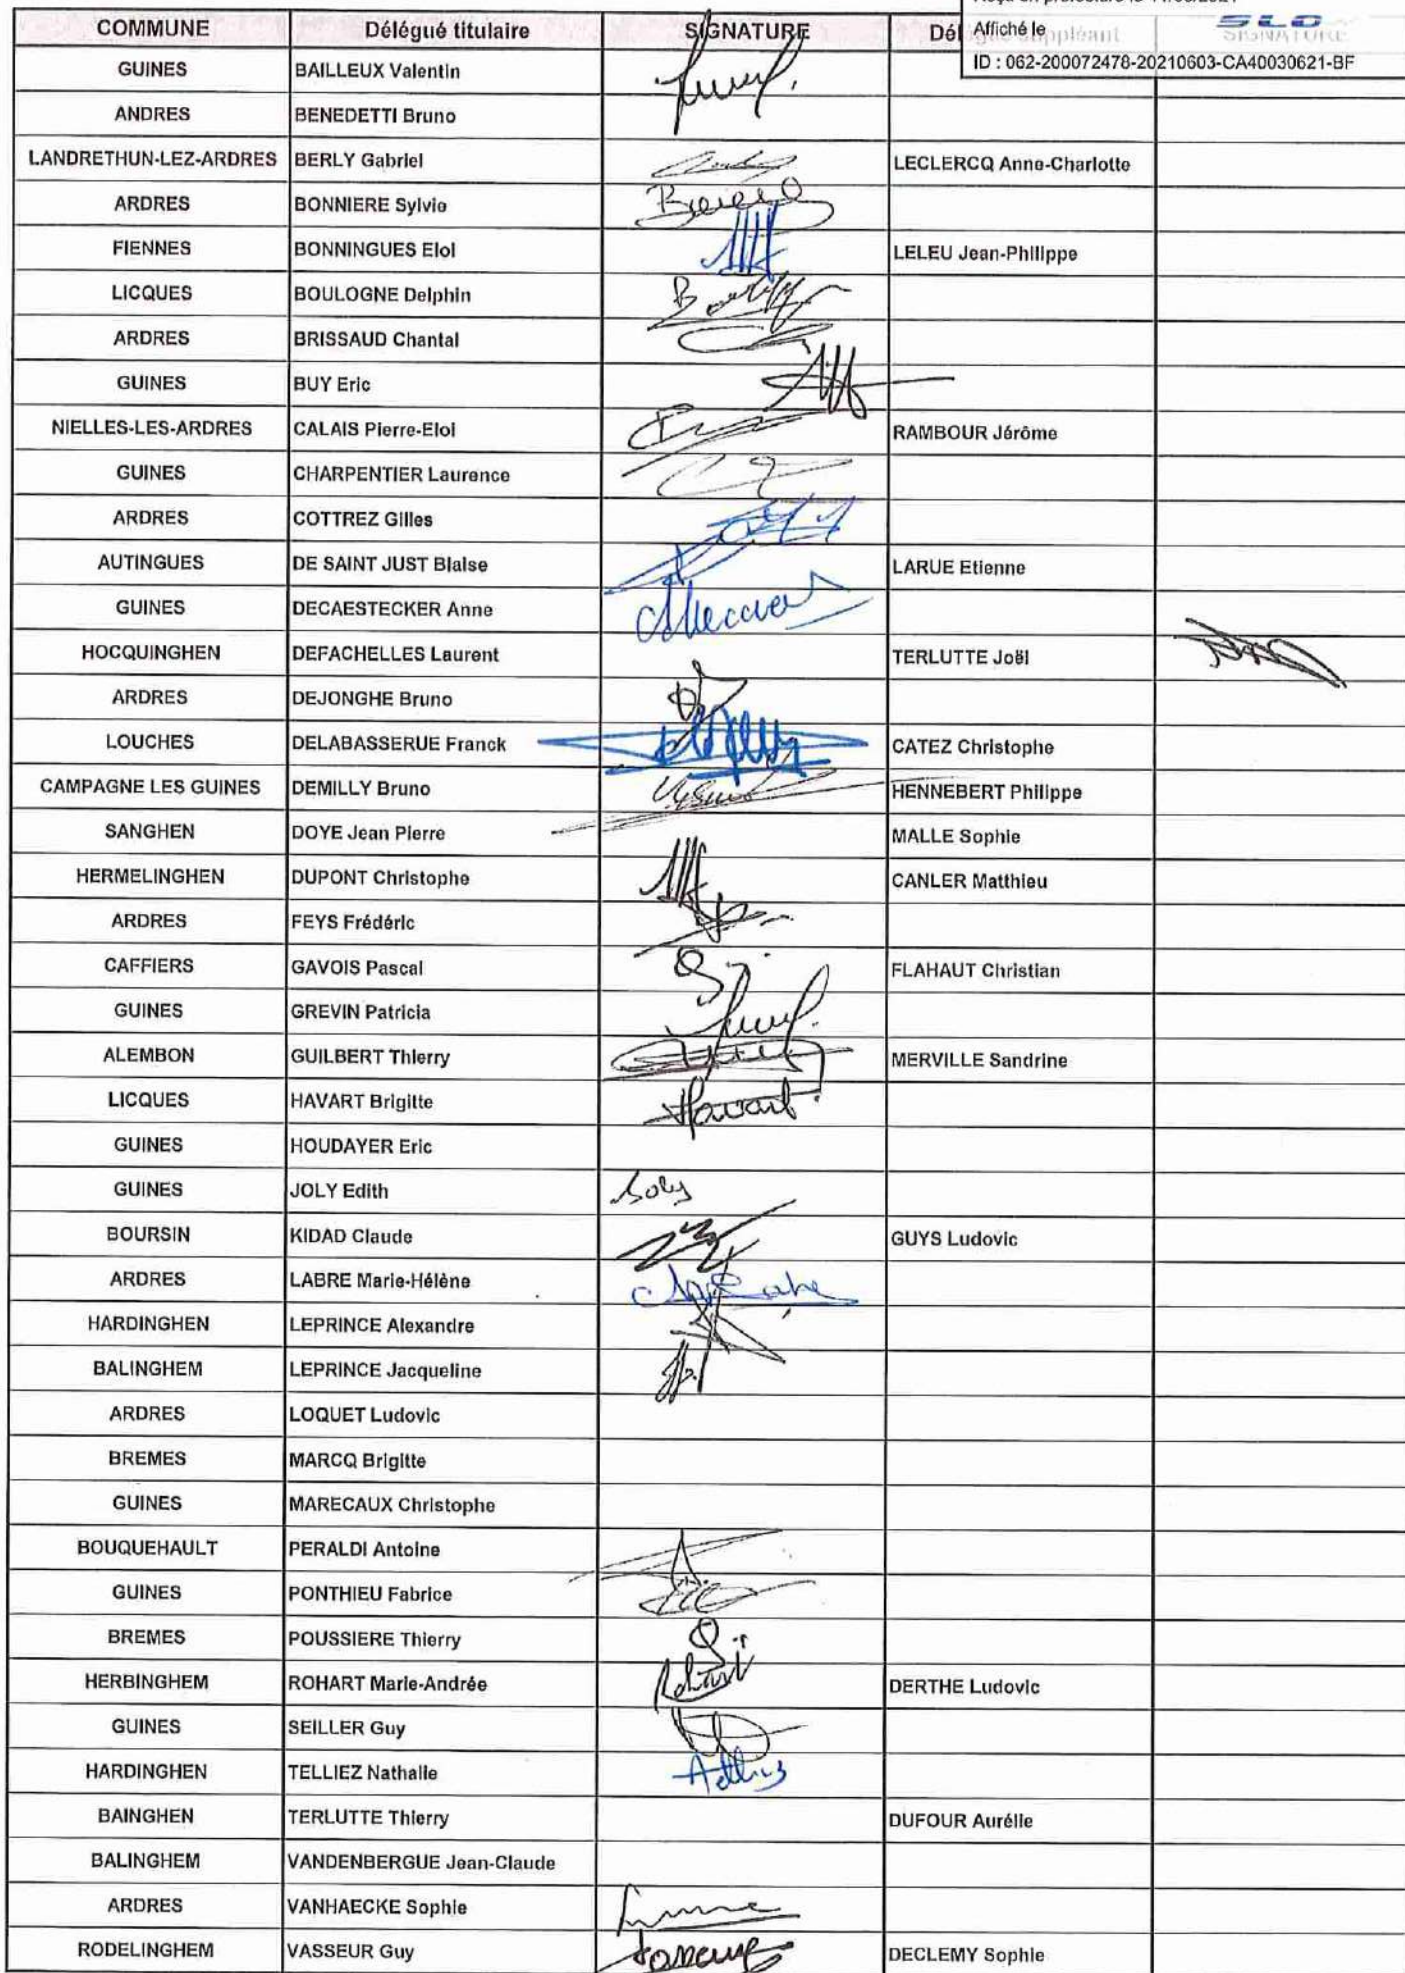 Affiché le
SLO
ID : 062-200072478-20210603-CA40030621-BF
COMMUNE Délégué titulaire SIGNATURE suppléant SIGNATURE
GUINES BAILLEUX Valentin
ANDRES BENEDETTI Bruno
LANDRETHUN-LEZ-ARDRES BERLY Gabriel LECLERCQ Anne-Charlotte
ARDRES BONNIERE Sylvie
FIENNES BONNINGUES Eloi LELEU Jean-Philippe
LICQUES BOULOGNE Delphin
ARDRES BRISSAUD Chantal
GUINES BUY Eric
NIELLES-LES-ARDRES CALAIS Pierre-Eloi RAMBOUR Jérôme
GUINES CHARPENTIER Laurence
ARDRES COTTREZ Gilles
AUTINGUES DE SAINT JUST Blaise LARUE Etienne
GUINES DECAESTECKER Anne
HOCQUINGHEN DEFACHELLES Laurent TERLUTTE Joël
ARDRES DEJONGHE Bruno
LOUCHES DELABASSERUE Franck CATEZ Christophe
CAMPAGNE LES GUINES DEMILLY Bruno HENNEBERT Philippe
SANGHEN DOYE Jean Pierre MALLE Sophie
HERMELINGHEN DUPONT Christophe CANLER Matthieu
ARDRES FEYS Frédéric
CAFFIERS GAVOIS Pascal FLAHAUT Christian
GUINES GREVIN Patricia
ALEMBON GUILBERT Thierry MERVILLE Sandrine
LICQUES HAVART Brigitte Havart
GUINES HOUDAYER Eric
GUINES JOLY Edith Joly
BOURSIN KIDAD Claude GUYS Ludovic
ARDRES LABRE Marie-Hélène
HARDINGHEN LEPRINCE Alexandre
BALINGHEM LEPRINCE Jacqueline
ARDRES LOQUET Ludovic
BREMES MARCQ Brigitte
GUINES MARECAUX Christophe
BOUQUEHAULT PERALDI Antoine
GUINES PONTHIEU Fabrice
BREMES POUSSIERE Thierry
HERBINGHEM ROHART Marie-Andrée Rohart DERTHE Ludovic
GUINES SEILLER Guy
HARDINGHEN TELLIEZ Nathalie
BAINGHEN TERLUTTE Thierry DUFOUR Aurélie
BALINGHEM VANDENBERGUE Jean-Claude
ARDRES VANHAECKE Sophie
RODELINGHEM VASSEUR Guy DECLEMY Sophie